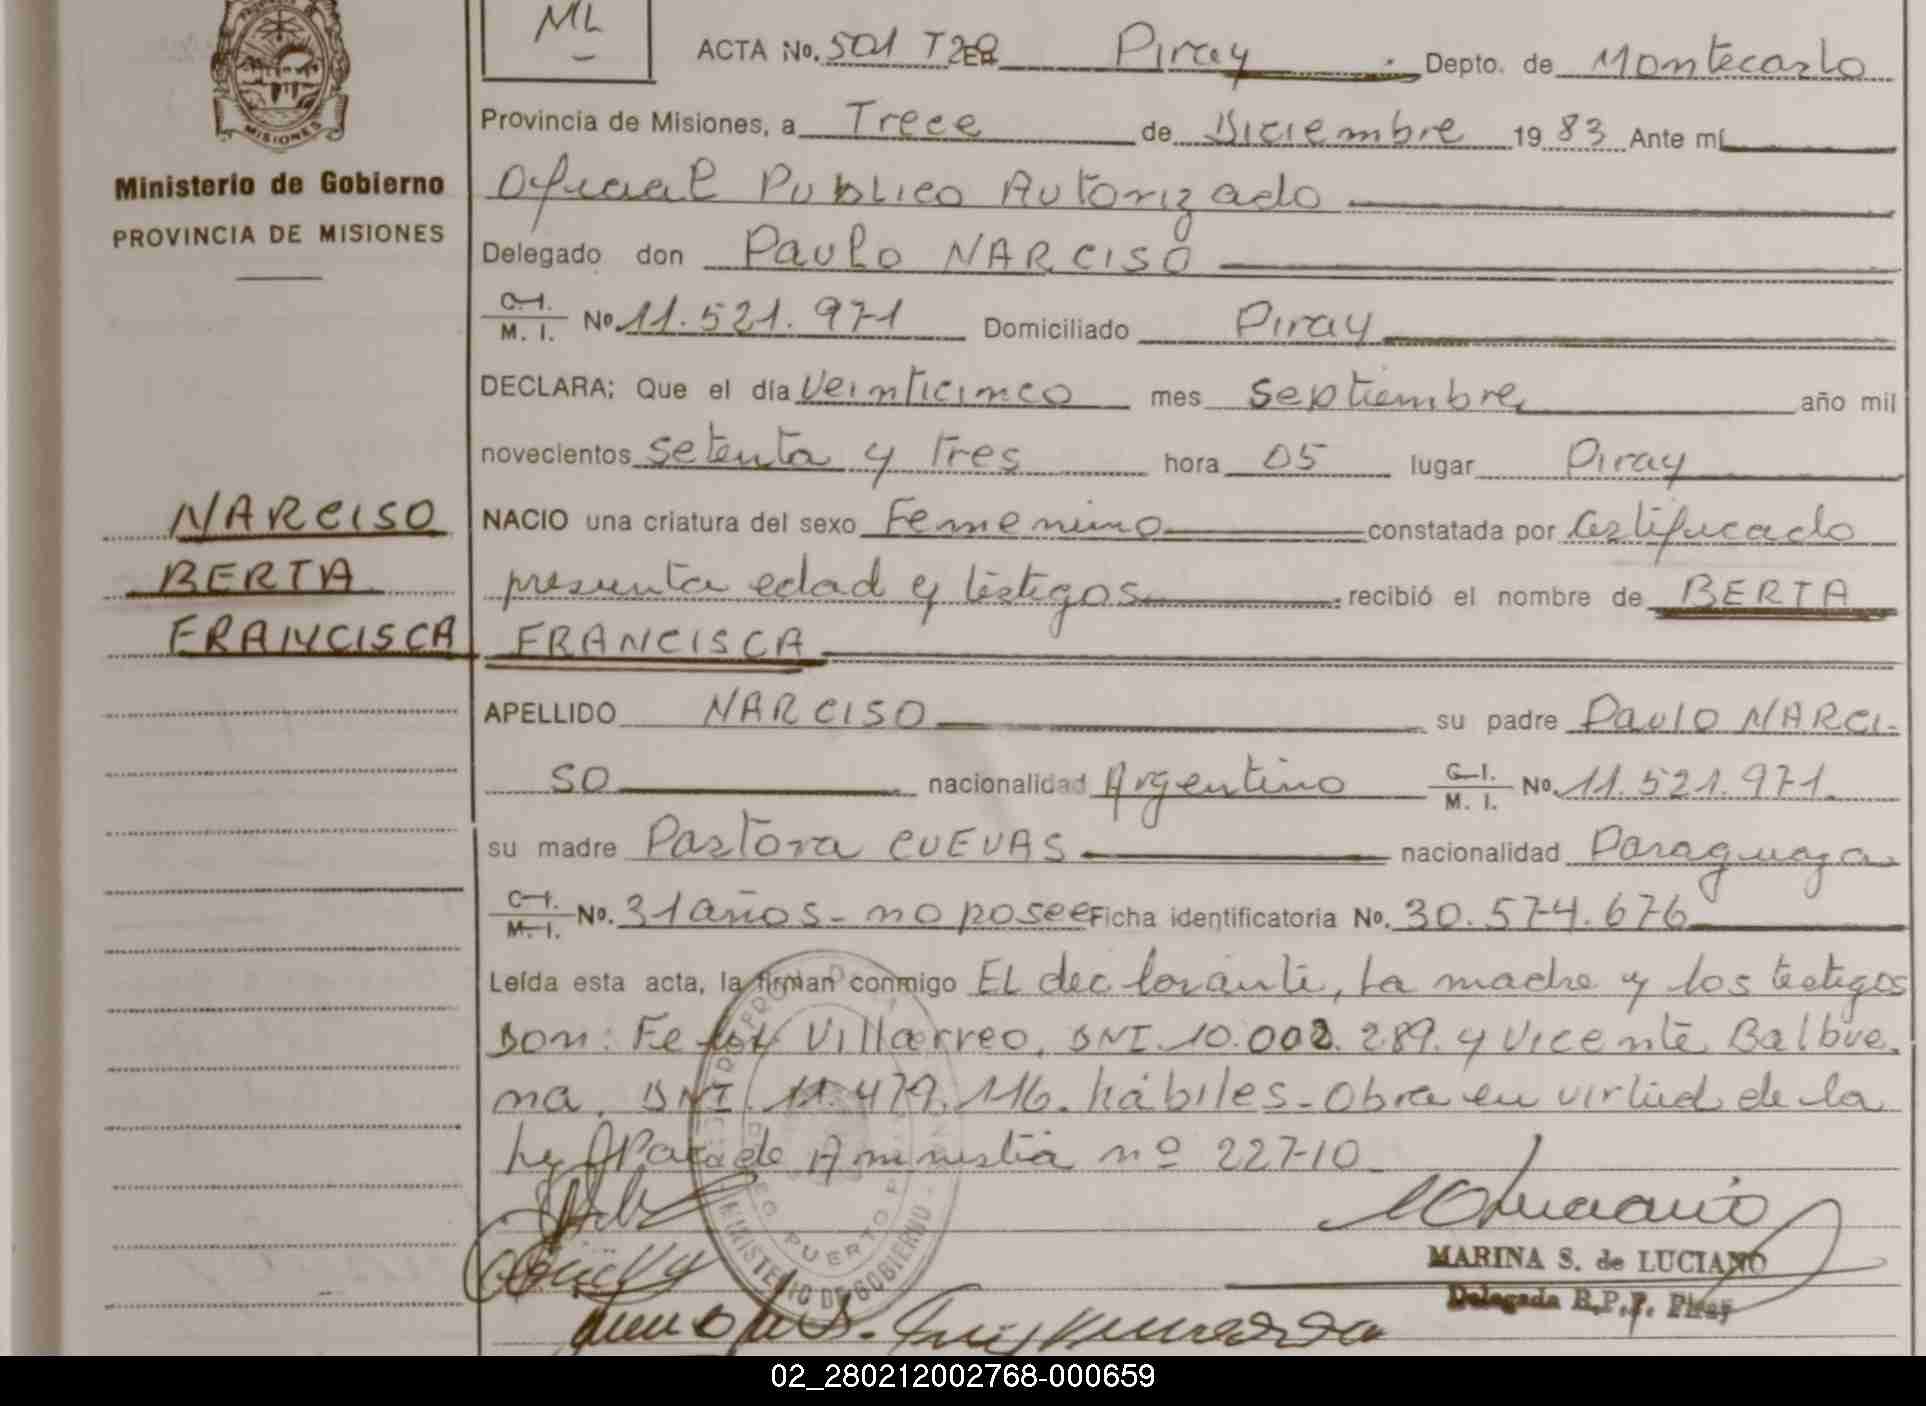 ML
ACTA No. 501 T2º EN Piray Depto. de Montecarlo
MISIONES
Provincia de Misiones, a Trece de Diciembre 1983 Ante mí
Ministerio de Gobierno
Oficial Publico Autorizado
PROVINCIA DE MISIONES
Delegado don Paulo NARCISO
C. I.
M. I. Nº 11.521.971 Domiciliado Piray
DECLARA; Que el día Veinticinco mes Septiembre año mil
novecientos setenta y Tres hora 05 lugar Piray
NARCISO
NACIO una criatura del sexo Femenino constatada por Certificado
BERTA
presunta edad y testigos recibió el nombre de BERTA
FRANCISCA
FRANCISCA
APELLIDO NARCISO su padre Paulo NARCI-
SO nacionalidad Argentino C. I.
M. I. No. 11.521.971
su madre Pastora CUEVAS nacionalidad Paraguaya
C. I.
M. I. No. 31 años - no posee Ficha identificatoria No. 30.574.676
Leída esta acta, la firman conmigo EL declarante, La madre y los testigos
Don: Villarreo. DNI. 10.002.289. y Vicente Balbue.
na. DNI. 11.479.116. hábiles - Obra en virtud de la
Ley de Amnistia nº 22710
MINISTERIO DE GOBIERNO
PUERTO
MARINA S. de LUCIANO
Delegada R.P.P. Piray
02_280212002768-000659